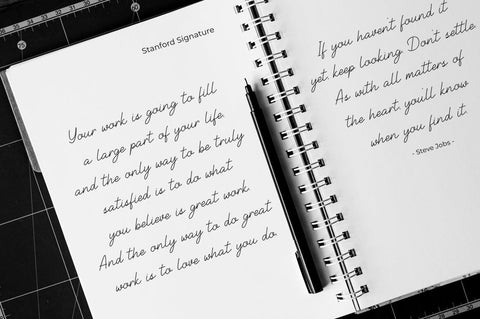 Stanford Signature
Your work is going to fill
a large part of your life,
and the only way to be truly
satisfied is to do what
you believe is great work.
And the only way to do great
work is to love what you do.
If you haven't found it
yet, keep looking. Don't settle.
As with all matters of
the heart, you'll know
when you find it.
- Steve Jobs -